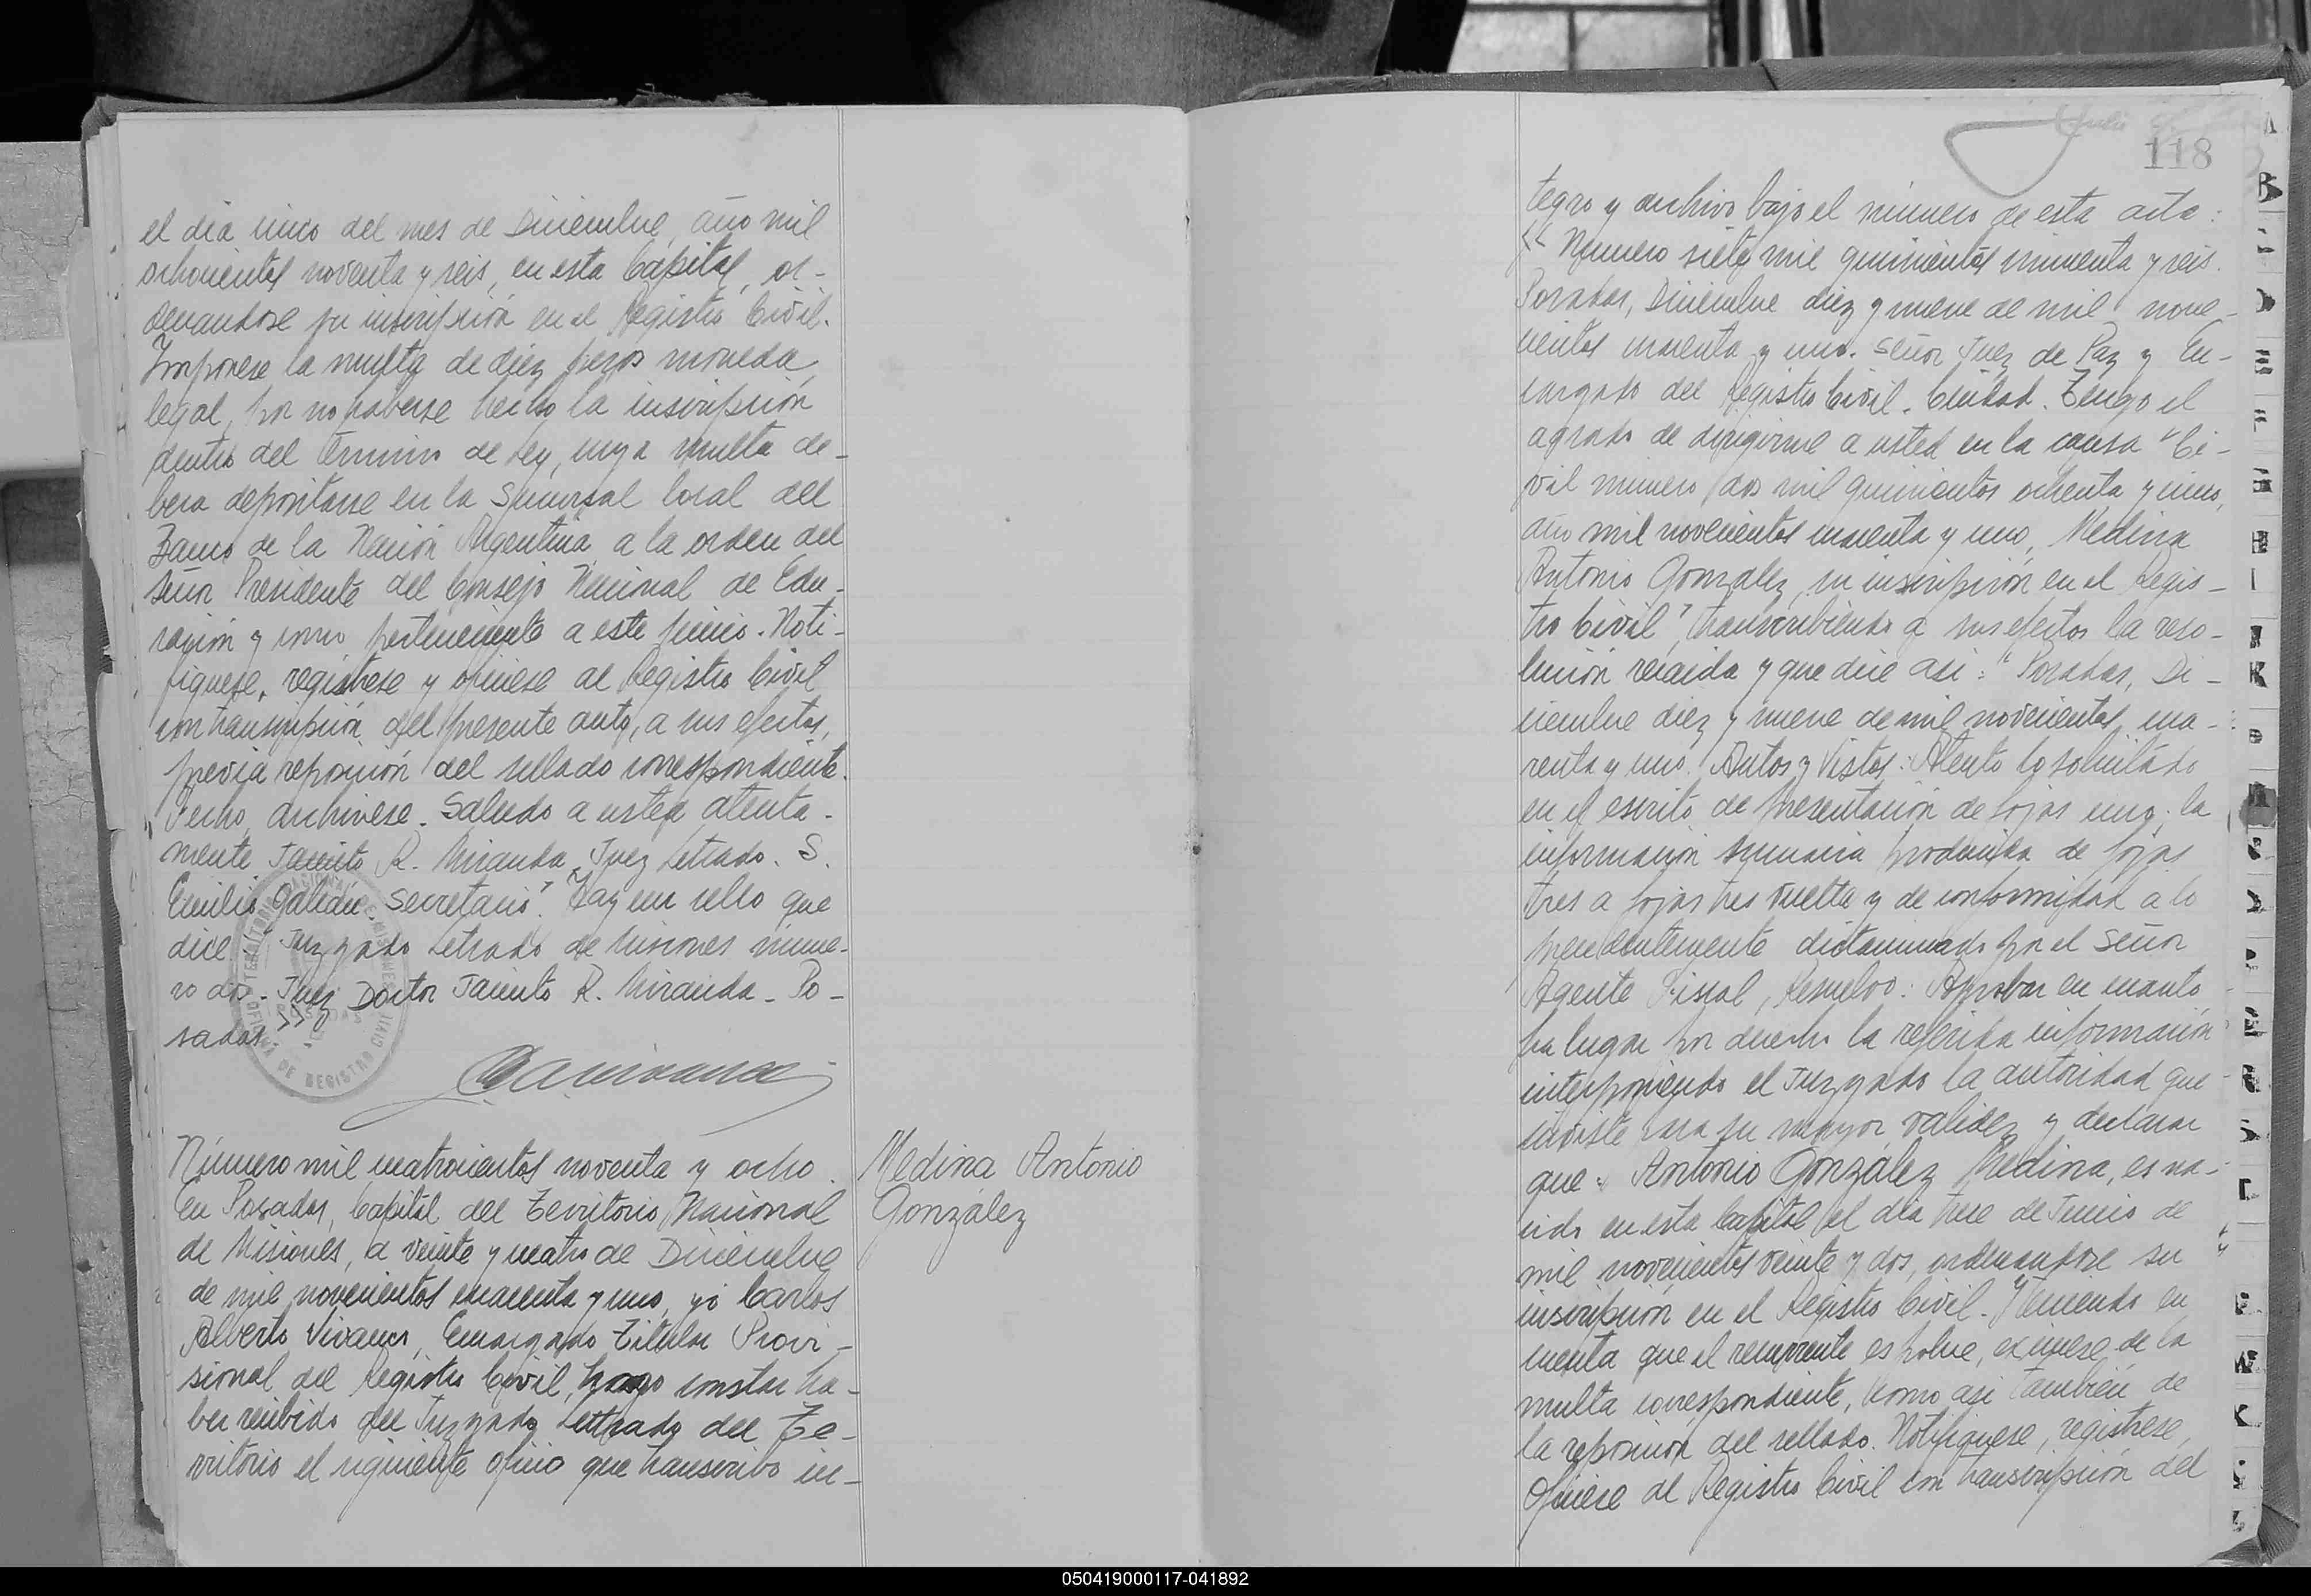 el día cinco del mes de Diciembre, año mil
ochocientos noventa y seis, en esta Capital, or-
denandose su inscripción en el Registro Civil.
Imponese la multa de diez pesos moneda
legal, por no haberse hecho la inscripción
dentro del término de Ley, cuya multa de-
bera depositarse en la Sucursal local del
Banco de la Nación Argentina a la orden del
Señor Presidente del Consejo Nacional de Edu-
cación y como perteneciente a este juicio. Noti-
fiquese, registrese y oficiese al Registro Civil
con transcripción del presente auto, a sus efectos,
previa reposición del sellado correspondiente.
Fecho, archivese. Saludo a usted atenta-
mente. Jacinto R. Miranda, Juez Letrado. S.
Emilio Secretario". Hay un sello que
dice: "Juzgado Letrado de Misiones núme-
ro dos. Juez Doctor Jacinto R. Miranda - Po-
sadas.>>
Número mil cuatrocientos noventa y ocho.
En Posadas, Capital del Territorio Nacional
de Misiones, a veinte y cuatro de Diciembre
de mil novecientos cuarenta y uno, yo Carlos
Alberto Vivanco, Encargado Titular Provi-
sional del Registro Civil, hago constar ha-
ber recibido del Juzgado Letrado del Te-
rritorio el siguiente oficio que transcribo in-
Medina Antonio
González
118
tegro y archivo bajo el número de esta acta:
<< Número siete mil quinientos cincuenta y seis.
Posadas, Diciembre diez y nueve de mil nove-
cientos cuarenta y uno. Señor Juez de Paz y En-
cargado del Registro Civil. Ciudad. Tengo el
agrado de dirigirme a usted en la causa "Ci-
vil número dos mil quinientos ochenta y cinco,
año mil novecientos cuarenta y uno, Medina
Antonio González, su inscripción en el Regis-
tro Civil", transcribiendo a sus efectos la reso-
lución recaida y que dice asi: "Posadas, Di-
ciembre diez y nueve de mil novecientos cua-
renta y uno. Autos y Vistos: Atento lo solicitado
en el escrito de presentación de fojas uno; la
información sumaria producida de fojas
tres a fojas tres vuelta y de conformidad a lo
precedentemente dictaminado por el Señor
Agente Fiscal, Resuelvo: Aprobar en cuanto
ha lugar por derecho la referida información
interponiendo el Juzgado la autoridad que
inviste para su mayor validez y declarar
que: Antonio González Medina, es na-
cido en esta Capital el día trece de Junio de
mil novecientos veinte y dos, ordenandose su
inscripción en el Registro Civil. Teniendo en
cuenta que el recurrente es pobre, eximese de la
multa correspondiente, como asi también de
la reposición del sellado. Notifiquese, registrese,
Oficiese al Registro Civil con transcripción del
050419000117-041892